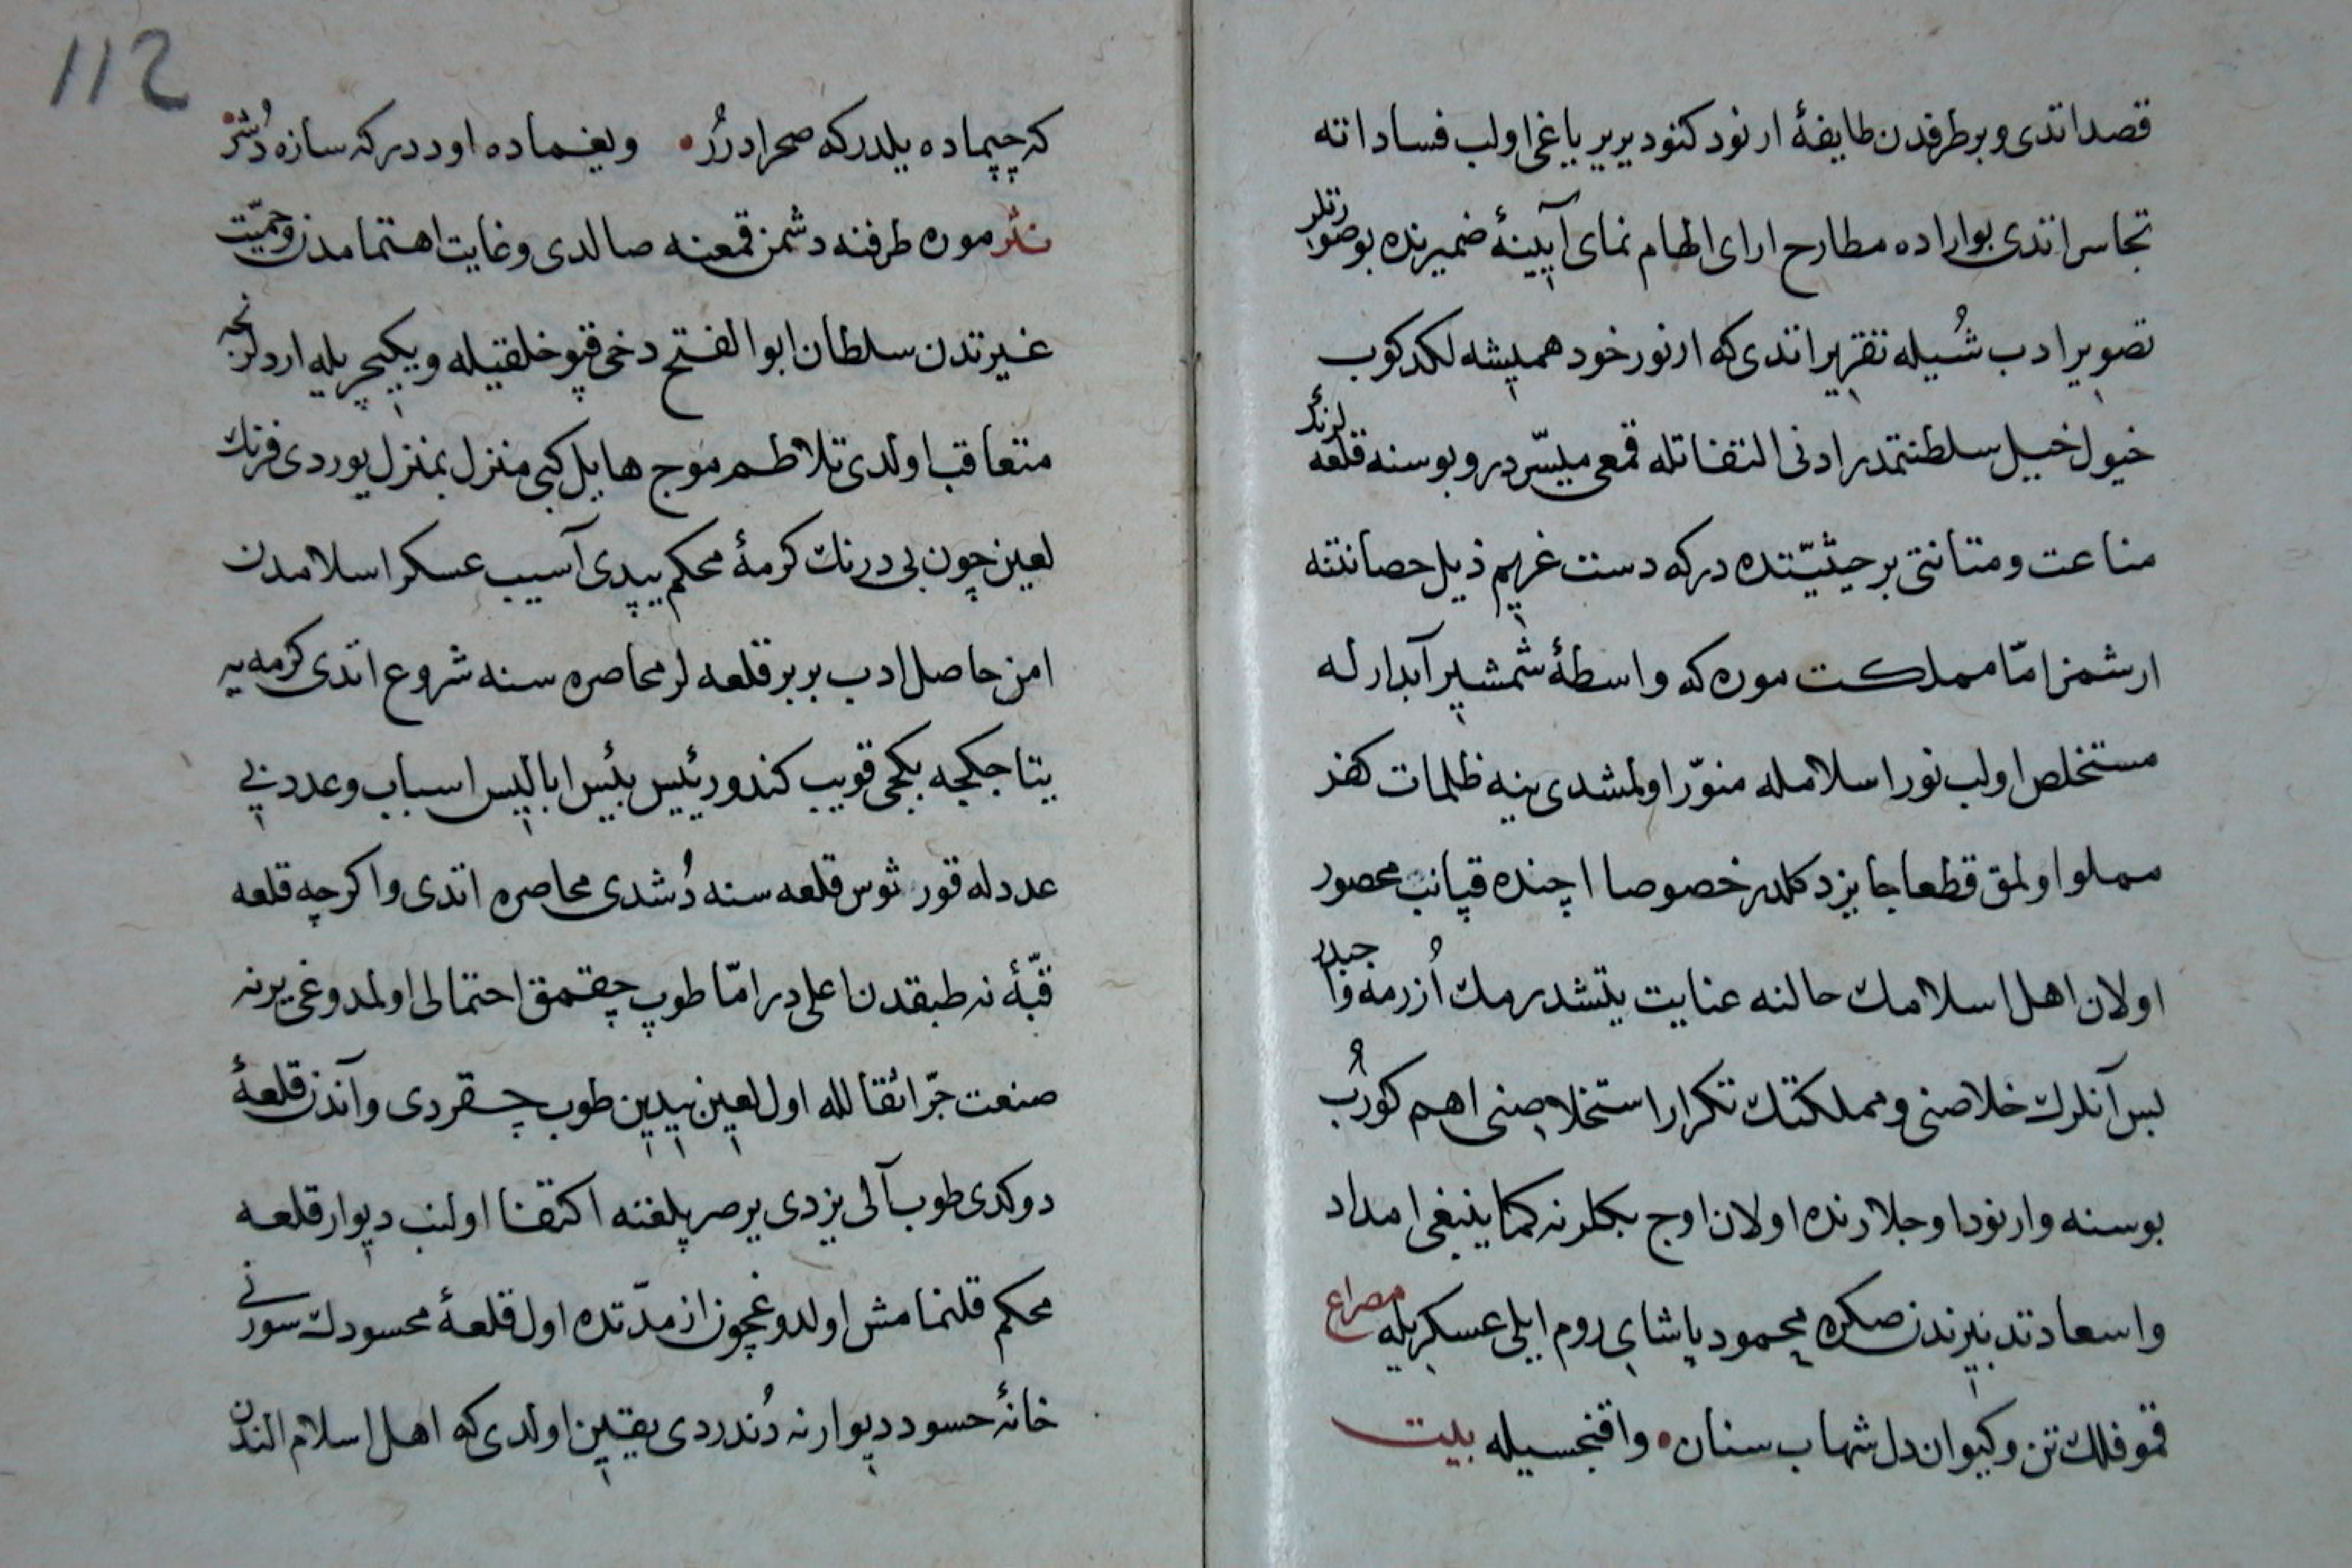 قصد اتدی و بر طرفدن طایفهٔ ارنود کنود یریر یاغی اولب فساد اته
تجاسر اتدی بو اراده مطارح ارای الهام نمای آیینهٔ ضمیرنده بو صورتلر
تصویر ادب شُیله تقریر اتدی که ارنور خود همیشه لکدکوب
خیول خیل سلطنتمدر ادنی التفاتله قمعی میسّردر و بوسنه قلعه لرنک
مناعت و متانتی بر حیثیّتده درکه دست غریم ذیل حصانتنه
ارشمز امّا مملکت موره که واسطهٔ شمشیر آبدارله
مستخلص اولب نور اسلامله منوّر اولمشدی ینه ظلمات کفر
مملو اولمق قطعا جایز دکلدر خصوصا اچنده قپانب محصور
اولان اهل اسلامك حالنه عنایت یتشدرمك اُزرمه واجبدر
بس آنلرك خلاصنی و مملکتك تکرار استخلاصنی اهم کورُب
بوسنه و ارنود اوجلارنده اولان اوج بکلرنه کما ینبغی امداد
و اسعاد تدبیرندن صکره محمود پاشای روم ایلی عسکریله مصراع
قمو فلك تن و کیوان دل شهاب سنان • و اقنجسیله بیت
112
که چپماده یلدرکه صحرا دررُ • و یغماده اوددر که سازه دُشر •
نثر موره طرفنه دشمن قمعنه صالدی و غایت اهتمامدن و حمیّت
غیرتدن سلطان ابو الفتح دخی قپو خلقیله و یکیچریله اردلرنجه
متعاقب اولدی تلاطم موج هایل کبی منزل بمنزل یوردی فرنك
لعین چون بی درنك کرمهٔ محکم یپدی آسیب عسکر اسلامدن
امن حاصل ادب بربر قلعه لر محاصره سنه شروع اتدی کرمه یه
یتاجکجه بکجی قویب کندو رئیس بئیس ابالیس اسباب و عددنی
عددله قورثوس قلعه سنه دُشدی محاصره اتدی و اکرچه قلعه
قبّهٔ نه طبقدن اعلی در امّا طوپ چقمق احتمالی اولمدوغی یرنه
صنعت جرّ اثقالله اول لعین بیدین طوب چقردی و آندن قلعهٔ
دوکدی طوب آلی یزدی یر صرپلغنه اکتفا اولنب دیوار قلعه
محکم قلنمامش اولدوغچون از مدّتده اول قلعهٔ محسودك سورنی
خانهٔ حسود دیوارنه دُندردی یقین اولدی که اهل اسلام الندن